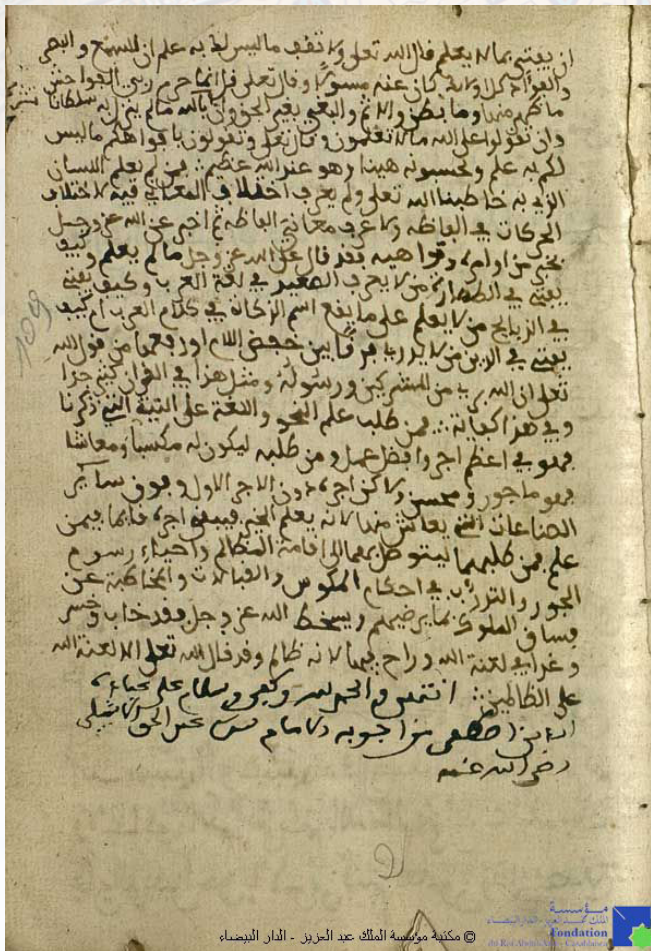 ان يفتي بما لا يعلم قال الله تعلى ولا تقف ما ليس لك به علم ان السمع والبصر
والفؤاد كل اولائك كان عنه مسؤلا وقال تعلى قل انما حرم ربي الفواحش
ما ظهر منها وما بطن والاثم والبغي بغير الحق وان تشركوا بالله ما لم ينزل به سلطانا
وان تقولوا على الله ما لا تعلمون وقال تعلى وتقولون بافواهكم ما ليس
لكم به علم وتحسبونه هينا وهو عند الله عظيم فمن لم يعلم اللسان
الذي به خاطبنا الله تعلى ولم يعرف اختلاف المعاني فيه لاختلاف
الحركات في الفاظه ولا عرف معاني الفاظه ثم اخبر عن الله عز وجل
بشيء من اوامره ونواهيه فقد قال على الله عز وجل ما لم يعلم وكيف
يفتي في الطهارة من لا يعرف الصعيد في لغة العرب وكيف يفتي
في الذبايح من لا يعلم على ما يقع اسم الزكاة في كلام العرب ام كيف
يفتي في الدين من لا يدري فرقا بين خفض اللام او رفعها من قول الله
تعلى ان الله بريء من المشركين ورسوله ومثل هذا في القران كثير جدا
وفي هذا كفاية فمن طلب علم النحو واللغة على النية التي ذكرنا
فهو في اعظم اجر وافضل عمل ومن طلبه ليكون له مكسبا ومعاشا
فهو ماجور ومحسن ولاكن اجره دون الاجر الاول وفوق ساير
الصناعات التي يعاش منها لانه يعلم الخير فيبقى اجره فايما فيمن
علم فمن طلبهما ليتوصل بهما الى اقامة المظالم واحياء رسوم
الجور والتورك في احكام المكوس والقبالات والمخاطبة عن
فساق الملوك بما يرضيهم ويسخط الله عز وجل فقد خاب وخسر
وغدا في لعنة الله وراح فيها لانه ظالم وقد قال الله تعلى الا لعنة الله
على الظالمين انتهى والحمد لله وكفى وسلام على عباده
الذين اصطفى من اجوبة الامام عبد الحق الاشبيلي
رضي الله عنه
109
مؤسسة
الملك عبد العزيز - الدار البيضاء
Fondation
du Roi Abdul-Aziz - Casablanca
© مكتبة مؤسسة الملك عبد العزيز - الدار البيضاء